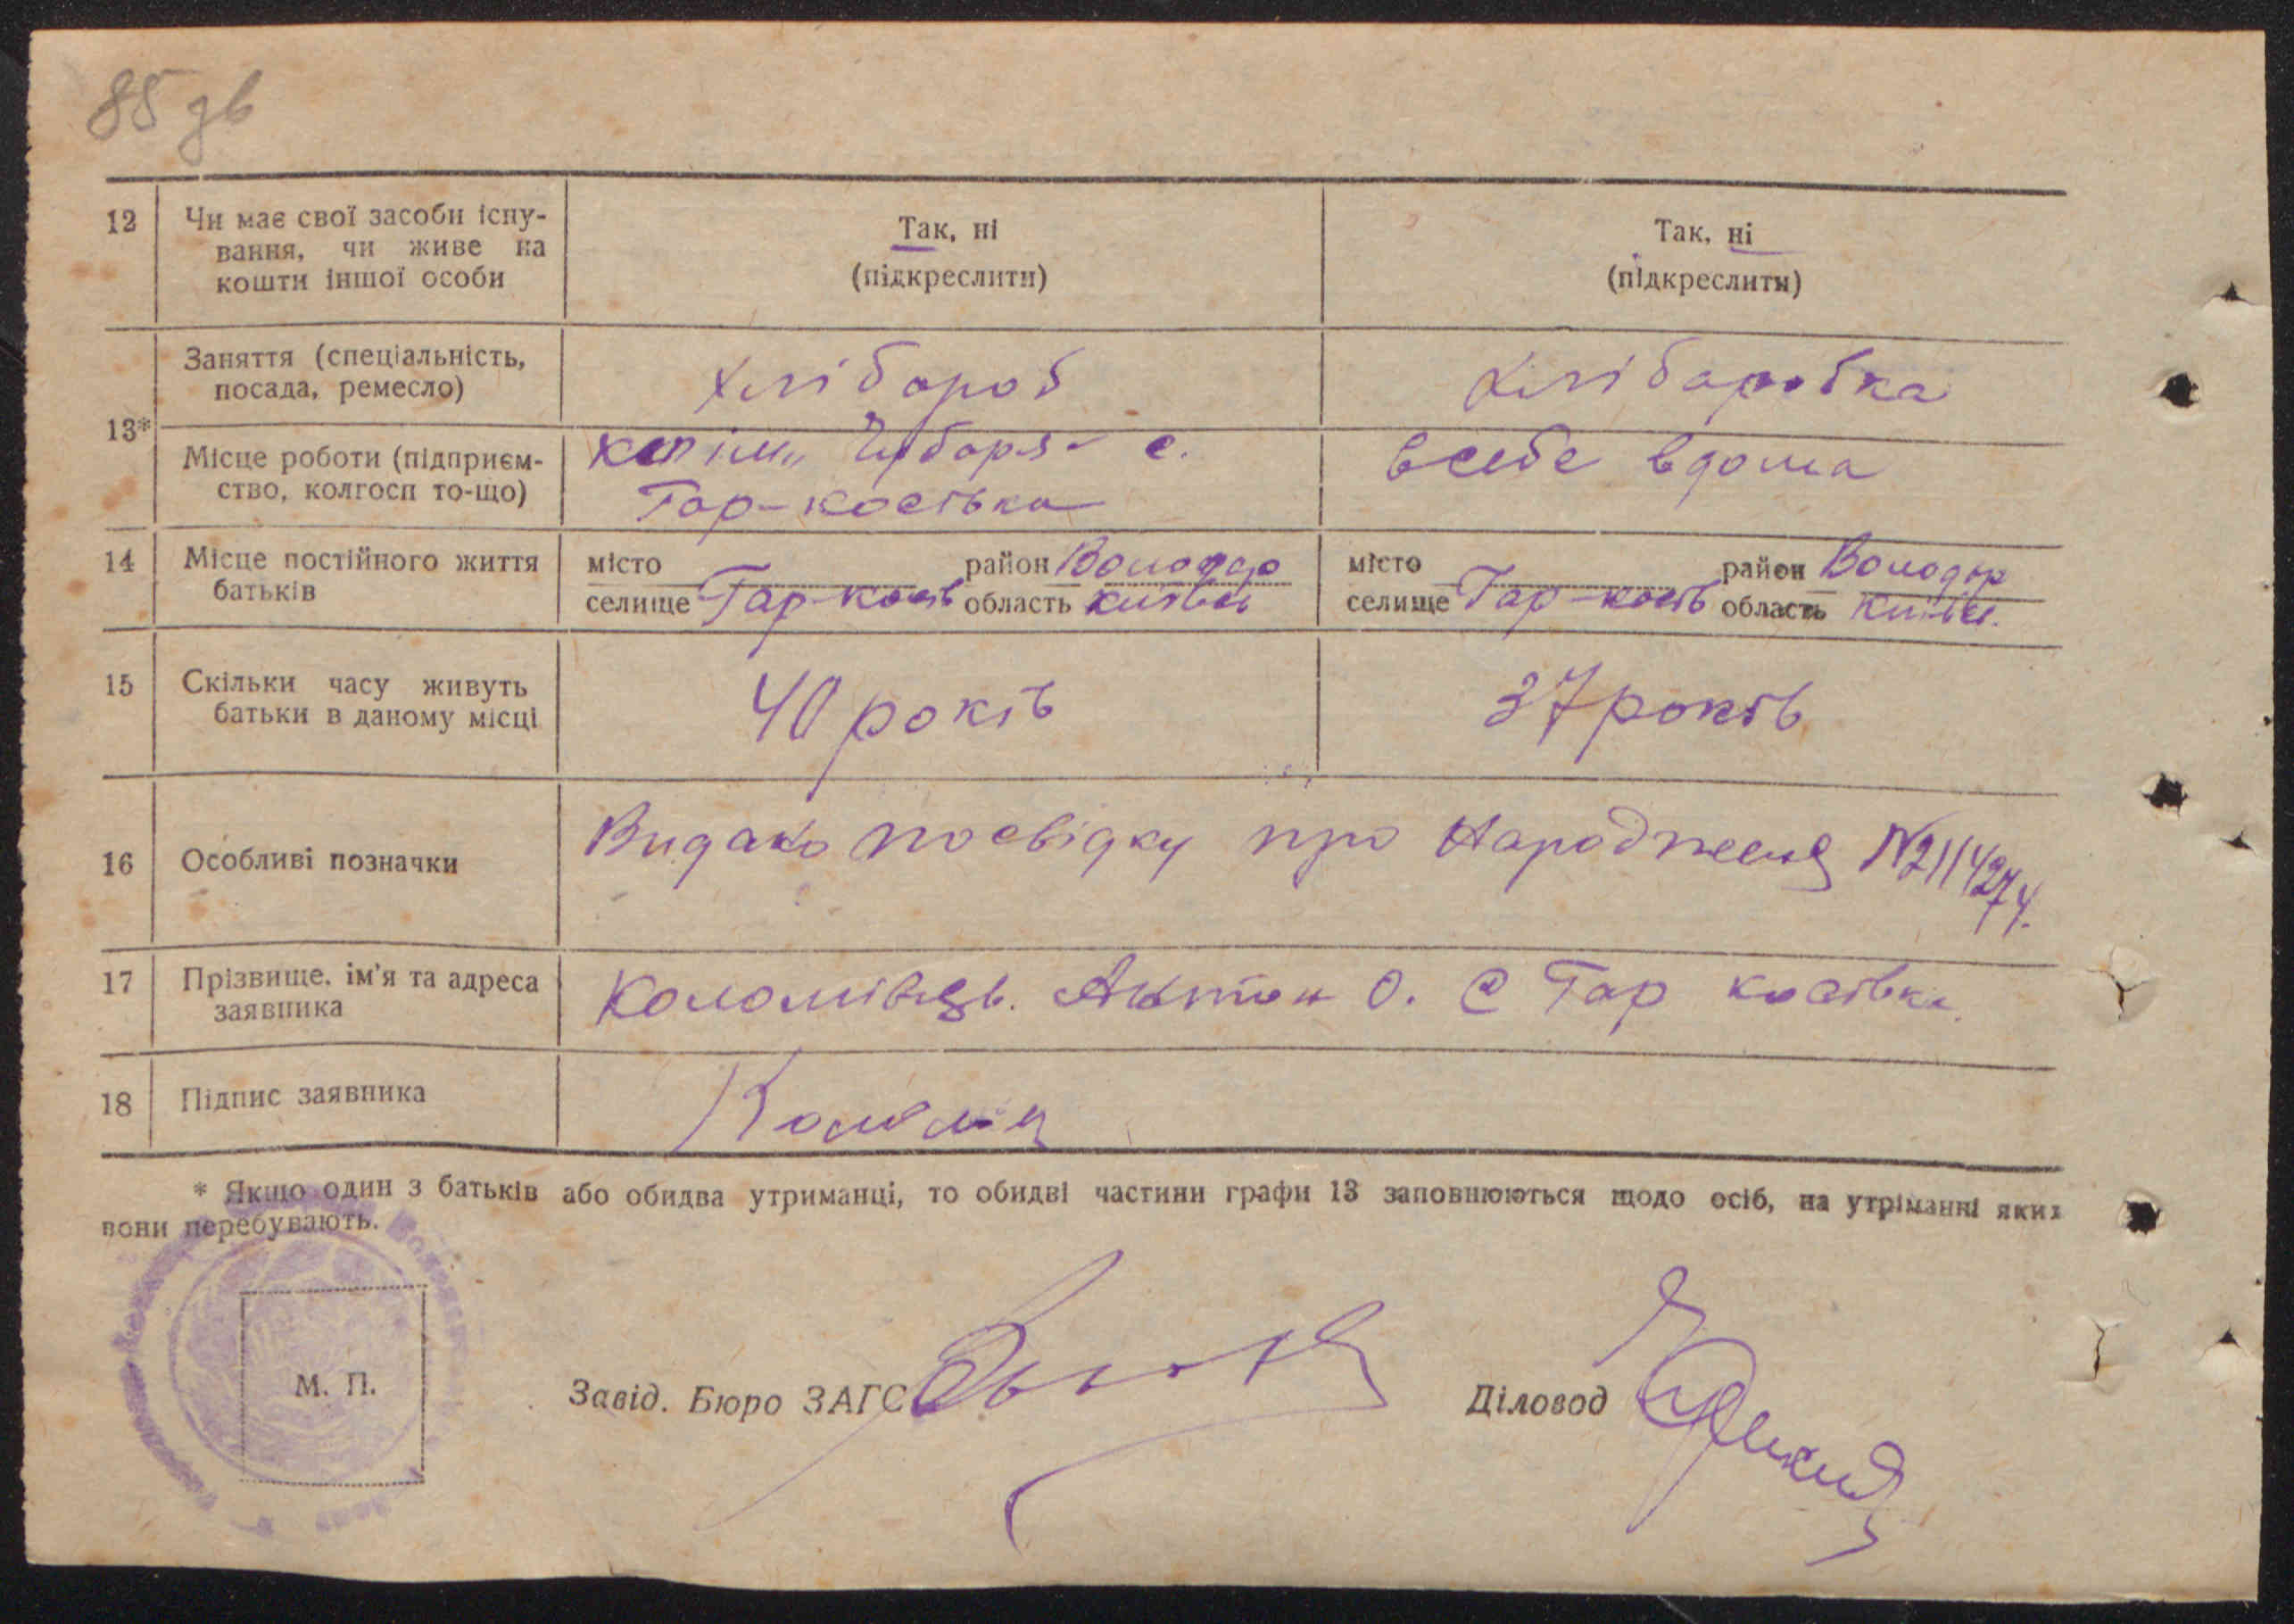 85 зв
12 Чи має свої засоби існу-
вання, чи живе на
кошти іншої особи
Так, ні
(підкреслити)
Так, ні
(підкреслити)
13*
Заняття (спеціальність,
посада, ремесло)
хлібороб
хліборобка
Місце роботи (підприєм-
ство, колгосп то-що)
кол ім. Чубаря с.
Гар-косівка
в себе вдома
14 Місце постійного життя
батьків
місто район Володар
селище Гар-косів область київсь
місто район Володар
селище Гар-косів область київс.
15 Скільки часу живуть
батьки в даному місці
40 років
37 років
16 Особливі позначки
Видано посвідку про народження №211427ч.
17 Прізвище, ім'я та адреса
заявника
Коломієць. Антон О. с Гар косівка.
18 Підпис заявника
Коломіц
* Якщо один з батьків або обидва утриманці, то обидві частини графи 13 заповнюються щодо осіб, на утріманні яких
вони перебувають.
М. П.
Завід. Бюро ЗАГС
Діловод